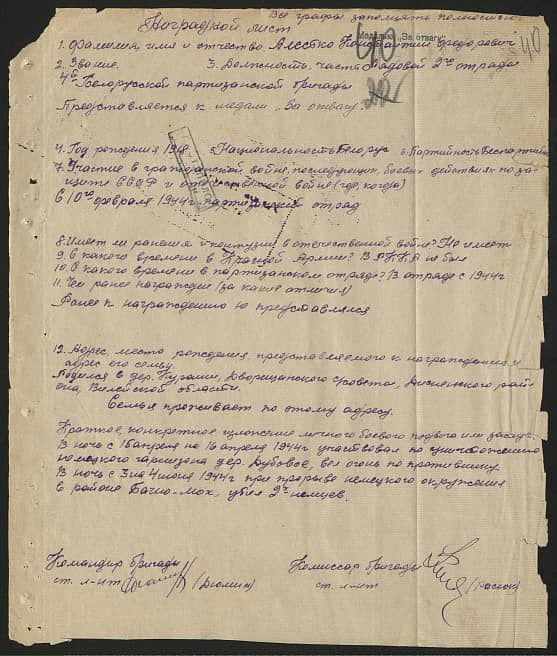 Все графы заполнять полностью
Наградной лист
Медалью "За отвагу"
40
1. Фамилия, имя и отчество Алестко Константин Федорович
2. Звание. 3. Должность, часть Рядовой 2го отряда
4й Белорусской партизанской бригады
Представляется к медали "За отвагу"
4. Год рождения 1918 5. Национальность Белорус 6. Партийность Беспартийн
7. Участие в гражданской войне, последующих боевых действиях по за-
щите СССР и отечественной войне (где, когда)
с 10го февраля 1944г партизанский отряд
8. Имеет ли ранения и контузии в отечественной войне? Не имеет
9. С какого времени в Красной Армии? В РККА не был
10. С какого времени в партизанском отряде? В отряде с 1944г
11. Чем ранее награжден (за какие отличия)
Ранее к награждению не представлялся
12. Адрес, место рождения, представляемого к награждению и
адрес его семьи.
Родился в дер. Дворищанского с/совета, Дисненского рай
она, Вилейской области.
Семья проживает по этому адресу.
Краткое, конкретное изложение личного боевого подвига или заслуг.
В ночь с 15 апреля по 16 апреля 1944г участвовал по уничтожению
немецкого гарнизона дер. Дубовое, вел огонь по противнику.
В ночь с 3 на 4 июня 1944г при прорыве немецкого окружения
в районе Бачно-Мох, убил 2х немцев.
Командир бригады Комиссар бригады
ст. л-нт (Дюмин) ст. л-нт